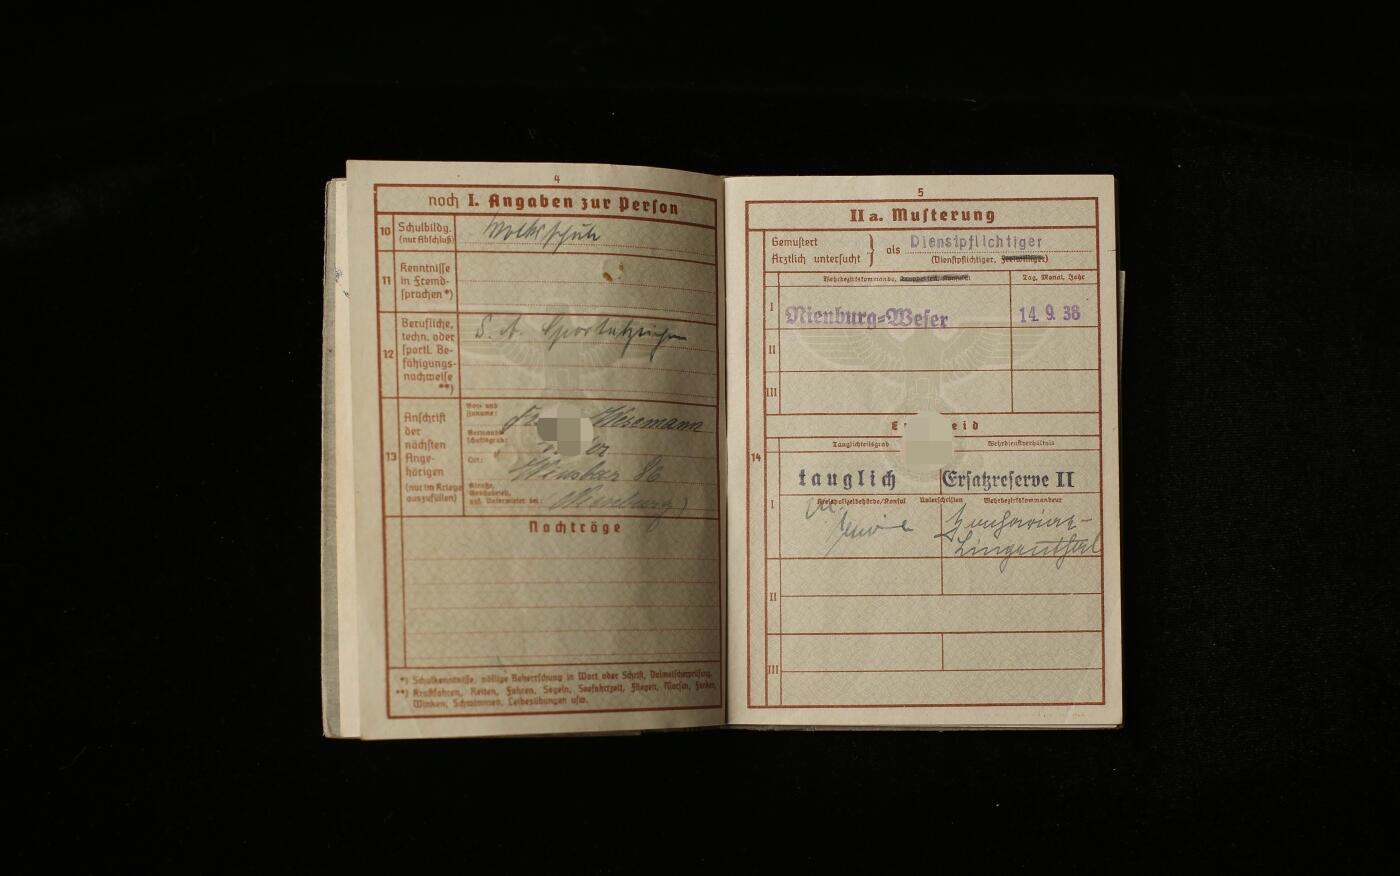 4
noch I. Angaben zur Person
10
Schulbildg.
(nur Abschluß)
Volksschule
11
Kenntnisse
in Fremd-
sprachen *)
12
Berufliche,
techn. oder
sportl. Be-
fähigungs-
nachweise
**)
S. A. Sportabzeichen
13
Anschrift
der
nächsten
Ange-
hörigen
(nur im Kriege
auszufüllen)
Vor- und
Zuname:
Wesemann
Verwandt-
schaftsgrad:
Ort:
86
Straße,
Nienburg)
Nachträge
*) Schulkenntnisse, völlige Beherrschung in Wort oder Schrift, Dolmetscherprüfung.
**) Kraftfahren, Reiten, Fahren, Segeln, Seefahrtzeit, Fliegen, Morsen, Funken,
Winken, Schwimmen, Leibesübungen usw.
5
II a. Musterung
Gemustert
Ärztlich untersucht
als Dienstpflichtiger
(Dienstpflichtiger, Freiwilliger)
Wehrbezirkskommando,
Tag, Monat, Jahr
I
Nienburg-Weser
14. 9. 38
II
III
14
Tauglichkeitsgrad
Wehrdienstverhältnis
tauglich
Ersatzreserve II
I
Kreispolizeibehörde/Konsul
Unterschriften
Wehrbezirkskommandeur
II
III